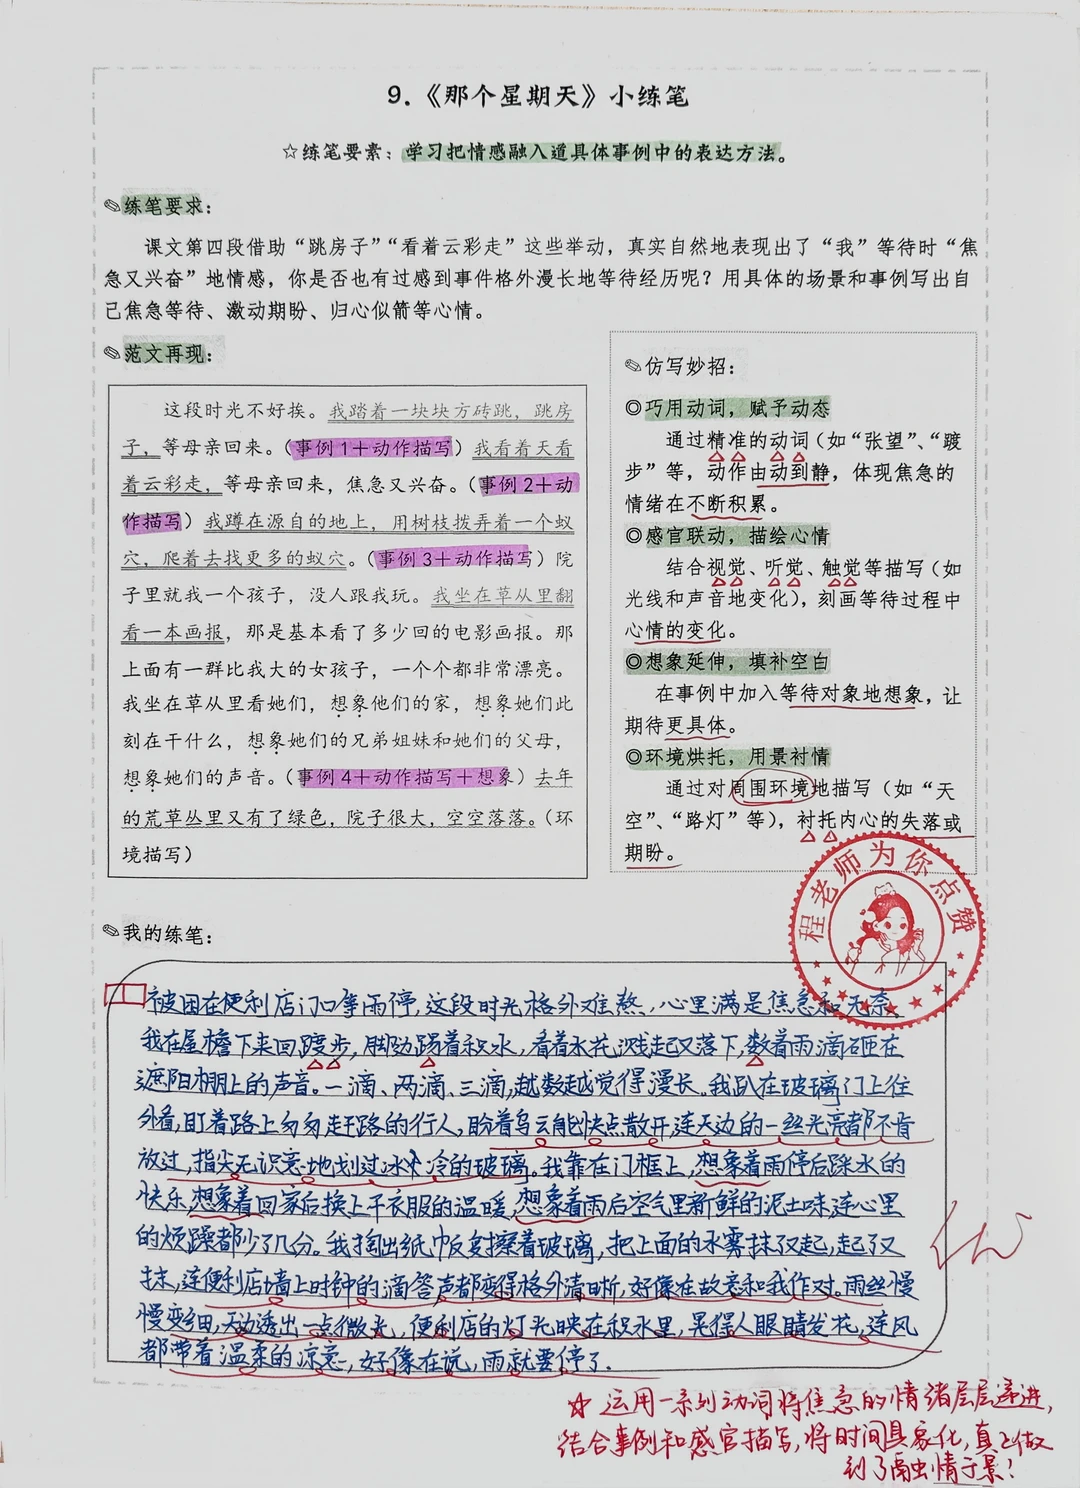 9.《那个星期天》小练笔
☆练笔要素：学习把情感融入道具体事例中的表达方法。
✎练笔要求：
课文第四段借助“跳房子”“看着云彩走”这些举动，真实自然地表现出了“我”等待时“焦
急又兴奋”地情感，你是否也有过感到事件格外漫长地等待经历呢？用具体的场景和事例写出自
己焦急等待、激动期盼、归心似箭等心情。
✎范文再现：
这段时光不好挨。我踏着一块块方砖跳，跳房
子，等母亲回来。（事例1＋动作描写）我看着天看
着云彩走，等母亲回来，焦急又兴奋。（事例2＋动
作描写）我蹲在源自的地上，用树枝拨弄着一个蚁
穴，爬着去找更多的蚁穴。（事例3＋动作描写）院
子里就我一个孩子，没人跟我玩。我坐在草丛里翻
看一本画报，那是基本看了多少回的电影画报。那
上面有一群比我大的女孩子，一个个都非常漂亮。
我坐在草丛里看她们，想象他们的家，想象她们此
刻在干什么，想象她们的兄弟姐妹和她们的父母，
想象她们的声音。（事例4＋动作描写＋想象）去年
的荒草丛里又有了绿色，院子很大，空空落落。（环
境描写）
✎仿写妙招：
◎巧用动词，赋予动态
通过精准的动词（如“张望”、“踱
步”等，动作由动到静，体现焦急的
情绪在不断积累。
◎感官联动，描绘心情
结合视觉、听觉、触觉等描写（如
光线和声音地变化），刻画等待过程中
心情的变化。
◎想象延伸，填补空白
在事例中加入等待对象地想象，让
期待更具体。
◎环境烘托，用景衬情
通过对周围环境地描写（如“天
空”、“路灯”等），衬托内心的失落或
期盼。
程老师为你点赞
✎我的练笔：
被困在便利店门口等雨停，这段时光格外难熬，心里满是焦急和无奈。
我在屋檐下来回踱步，脚边踢着积水，看着水花溅起又落下，数着雨滴砸在
遮阳棚上的声音。一滴、两滴、三滴，越数越觉得漫长。我趴在玻璃门上往
外看，盯着路上匆匆赶路的行人，盼着乌云能快点散开，连天边的一丝光亮都不肯
放过，指尖无识意地划过冰冷的玻璃。我靠在门框上，想象着雨停后踩水的
快乐，想象着回家后换上干衣服的温暖，想象着雨后空气里新鲜的泥土味，连心里
的烦躁都少了几分。我掏出纸巾反复擦着玻璃，把上面的水雾抹了又起，起了又
抹，连便利店墙上时钟的滴答声都变得格外清晰，好像在故意和我作对。雨丝慢
慢变细，天边透出一点微光，便利店的灯光映在积水里，晃得人眼睛发花，连风
都带着温柔的凉意，好像在说，雨就要停了。
优
☆运用一系列动词将焦急的情绪层层递进，
结合事例和感官描写，将时间具象化，真正做
到了融情于景！